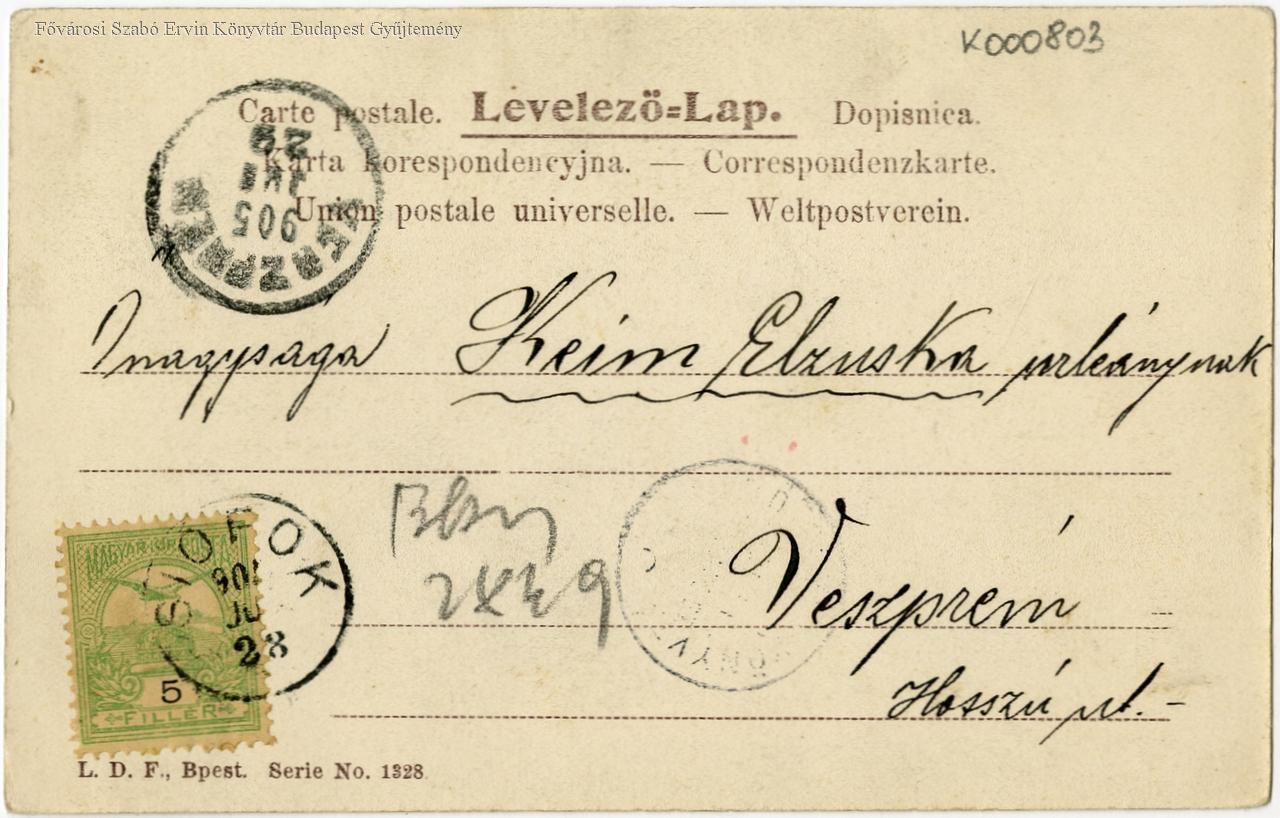 Fővárosi Szabó Ervin Könyvtár Budapest Gyűjtemény
K000803
Carte postale. Levelező=Lap. Dopisnica.
Karta korespondencyjna. — Correspondenzkarte.
Union postale universelle. — Weltpostverein.
VESZPRÉM
905
29
Őnagysága Keim Elzuska urleánynak
Veszprém
Hosszú ut.-
SIÓFOK
28
MAGYAR KIR. POSTA
5
FILLÉR
L. D. F., Bpest. Serie No. 1328